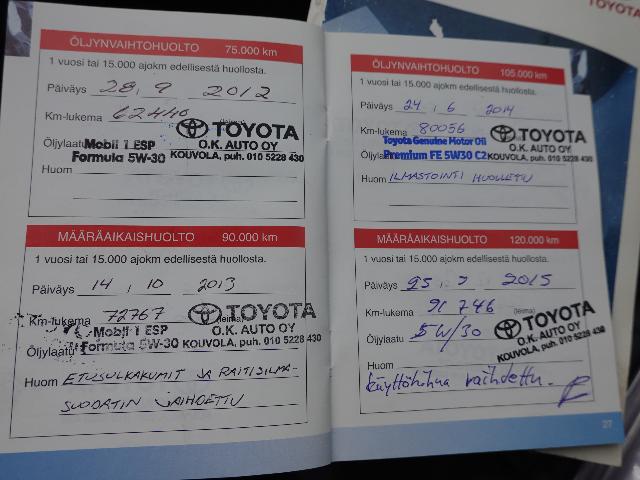 TOYOTA
ÖLJYNVAIHTOHUOLTO 75.000 km
1 vuosi tai 15.000 ajokm edellisestä huollosta.
Päiväys 28, 9 2012
Km-lukema 62440
TOYOTA
O.K. AUTO OY
KOUVOLA, puh. 010 5228 430
Öljylaatu Mobil 1 ESP
Formula 5W-30
Huom
MÄÄRÄAIKAISHUOLTO 90.000 km
1 vuosi tai 15.000 ajokm edellisestä huollosta.
Päiväys 14, 10 2013
Km-lukema 72767 (leima)
TOYOTA
O.K. AUTO OY
KOUVOLA, puh. 010 5228 430
Öljylaatu Mobil 1 ESP
Formula 5W-30
Huom ETUSULKAKUMIT JA RAITISILMA-
SUODATIN VAIHDETTU
ÖLJYNVAIHTOHUOLTO 105.000 km
1 vuosi tai 15.000 ajokm edellisestä huollosta.
Päiväys 24, 6 2014
Km-lukema 80056
TOYOTA
O.K. AUTO OY
KOUVOLA, puh. 010 5228 430
Toyota Genuine Motor Oil
Premium FE 5W30 C2
Huom ILMASTOINTI HUOLLETU
MÄÄRÄAIKAISHUOLTO 120.000 km
1 vuosi tai 15.000 ajokm edellisestä huollosta.
Päiväys 2015
Km-lukema 91 746 (leima)
TOYOTA
O.K. AUTO OY
KOUVOLA, puh. 010 5228 430
Öljylaatu 5W/30
Huom
käyttöhihna vaihdettu.
27